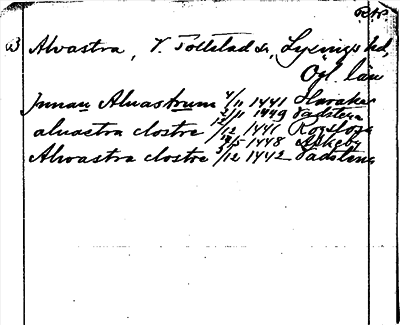 RAP
B Alvastra, V. Tollstad sn, Lysings hd,
Ögl. län
Innan Aluastrum 4/11 1441
2/11 1449 Vadstena
aluastra clostre 12/12 1441
5 1448 Askeby
Alwastra clostre 3/12 1442 Vadstena